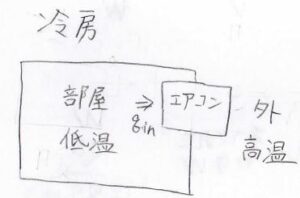 冷房
部屋
低温
⇒
qin
エアコン
外
高温